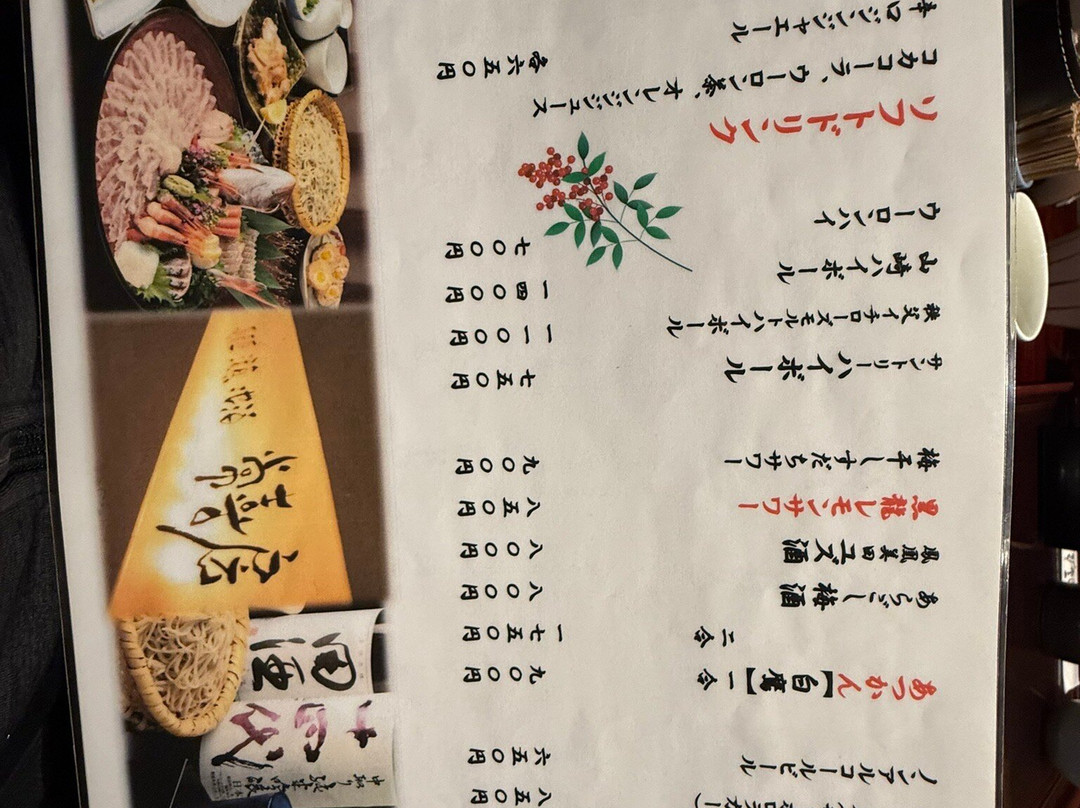 八五〇円
ノンアルコールビール 六五〇円
あつかん【白鷹】一合 九〇〇円
二合 一七五〇円
あらごし梅酒 八〇〇円
鳳凰美田ユズ酒 八〇〇円
黒龍レモンサワー 八五〇円
梅干しすだちサワー 九〇〇円
サントリーハイボール 七五〇円
秩父イチローズモルトハイボール 一一〇〇円
山崎ハイボール 一四〇〇円
ウーロンハイ 七〇〇円
ソフトドリンク
コカコーラ、ウーロン茶、オレンジジュース
辛口ジンジャエール 各六五〇円
十四代
田酒